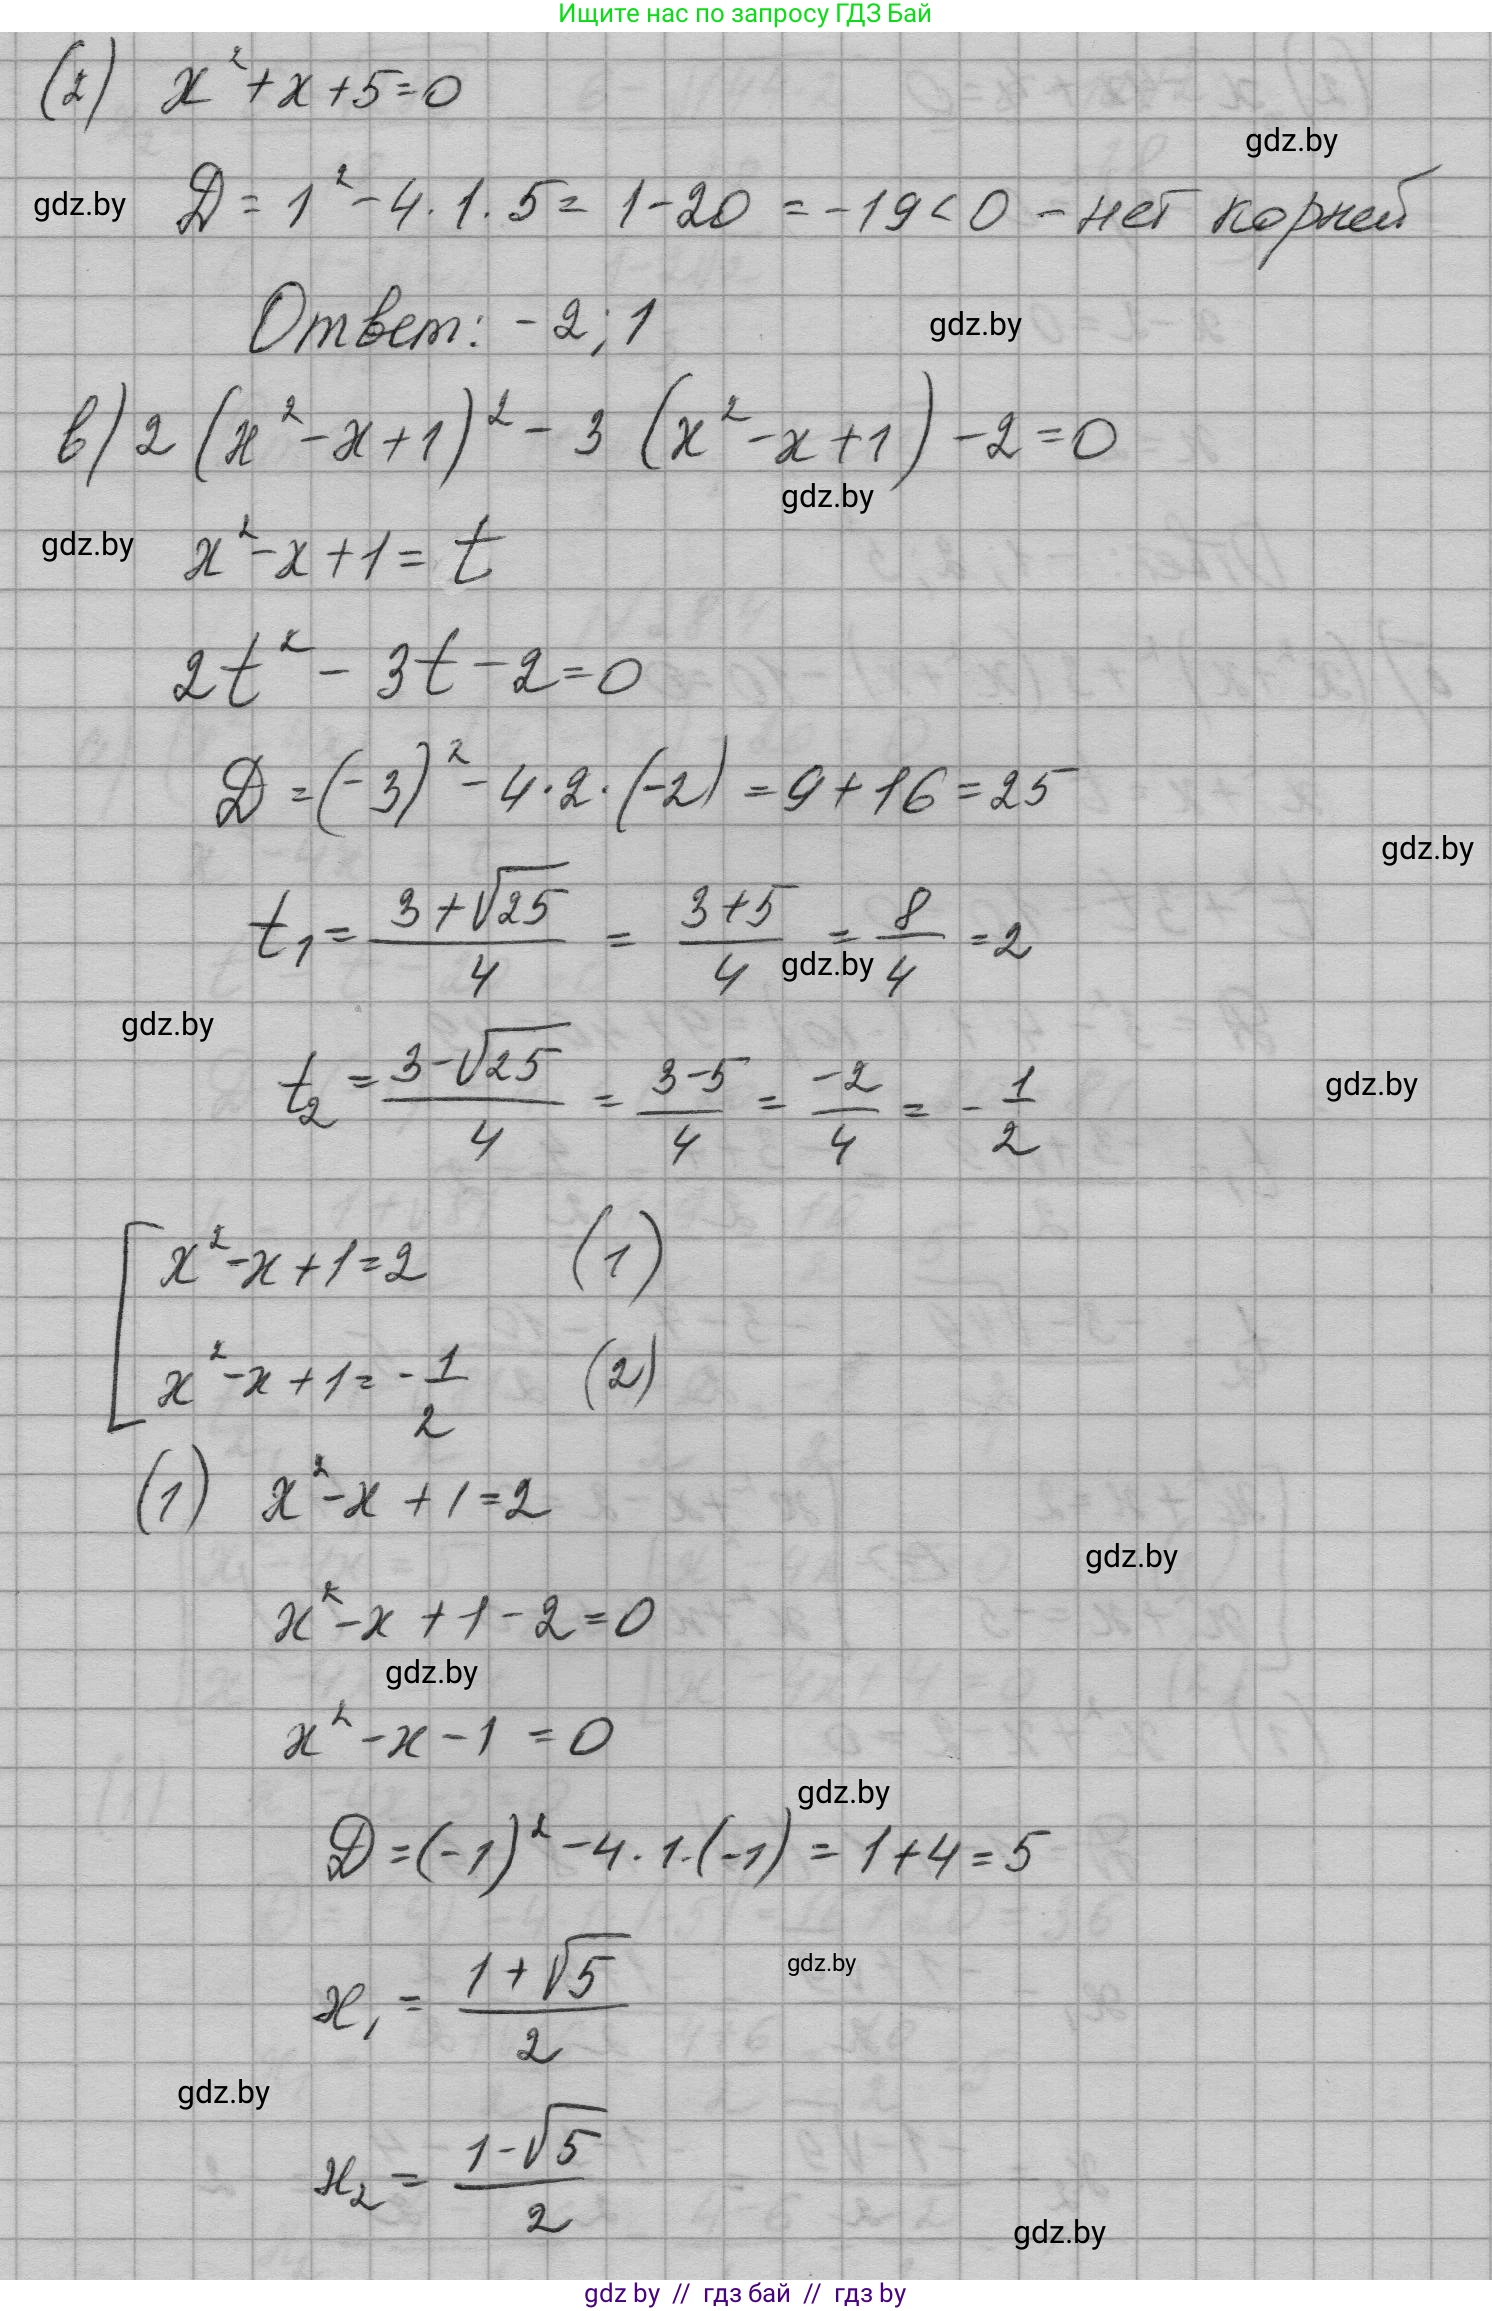 Ищите нас по запросу ГДЗ Бай
(2) x² + x + 5 = 0
gdz.by
gdz.by
D = 1² - 4 · 1 · 5 = 1 - 20 = -19 < 0 - нет корней
Ответ: -2; 1
gdz.by
в) 2 (x² - x + 1)² - 3 (x² - x + 1) - 2 = 0
gdz.by
gdz.by
x² - x + 1 = t
2t² - 3t - 2 = 0
D = (-3)² - 4 · 2 · (-2) = 9 + 16 = 25
gdz.by
t₁ = (3 + √25)/4 = (3 + 5)/4 = 8/4 = 2
gdz.by
gdz.by
t₂ = (3 - √25)/4 = (3 - 5)/4 = -2/4 = -1/2
gdz.by
[ x² - x + 1 = 2 (1)
x² - x + 1 = -1/2 (2)
(1) x² - x + 1 = 2
gdz.by
x² - x + 1 - 2 = 0
gdz.by
x² - x - 1 = 0
gdz.by
D = (-1)² - 4 · 1 · (-1) = 1 + 4 = 5
gdz.by
x₁ = (1 + √5)/2
gdz.by
x₂ = (1 - √5)/2
gdz.by
gdz by // гдз бай // гдз by